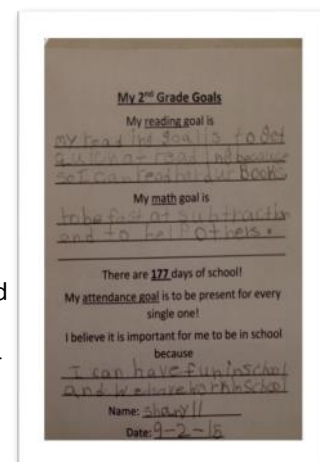 My 2nd Grade Goals
My reading goal is
my reading goal is to get
quicker at reading because
so I can read hardur Books
My math goal is
to be fast at subtraction
and to help others.
There are 177 days of school!
My attendance goal is to be present for every
single one!
I believe it is important for me to be in school
because
I can have fun in school
and we have to rk in School
Name: Sharyll
Date: 9-2-15
d